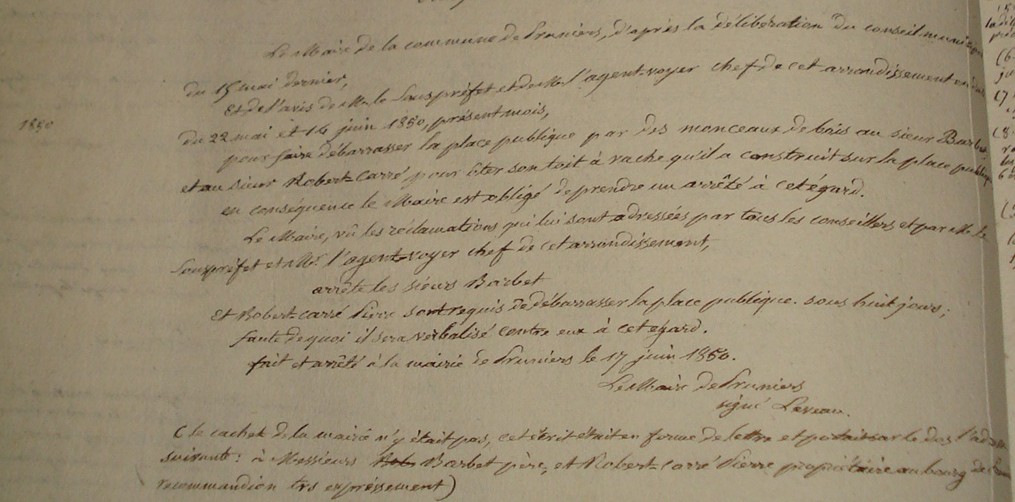 Le Maire de la commune de Pruniers, d'après la délibération du conseil
du 15 mai dernier,
Et de l'avis de M. le Souspréfet et de M. l'agent-voyer chef de cet arrondissement
1850
du 22 mai et 14 juin 1850, présent mois,
pour faire débarrasser la place publique par des monceaux de bois au sieur Barbet
et au sieur Robert-Carré pour ôter son toit à vache qu'il a construit sur la place publique
en conséquence le Maire est obligé de prendre un arrêté à cet égard.
Le Maire, vû les réclamations qui lui sont adressées par tous les conseillers et par M. le
Souspréfet et Mr. l'agent-voyer chef de cet arrondissement,
arrête les sieurs Barbet
et Robert-carré Pierre sont requis de débarrasser la place publique. sous huit jours;
faute de quoi il sera verbalisé contre eux à cet égard.
fait et arrêté à la mairie de Pruniers le 17 juin 1850.
Le Maire de Pruniers
signé Laveau.
(le cachet de la mairie n'y était pas, cet écrit était en forme de lettre et portait sur le dos l'adresse
suivante: à Messieurs Barbet père, et Robert-Carré Pierre propriétaire au bourg de
recommandion trs expréssement)